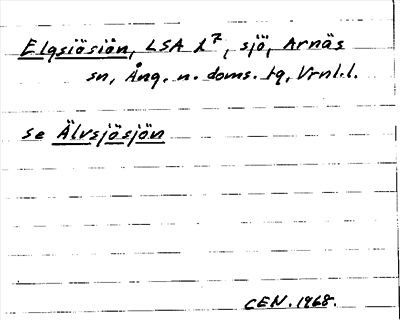 Elgsiösiön, LSA L7, sjö, Arnäs
sn, Ång. n. doms. tg, Vrnl.l.
se Älvsjösjön
CEN. 1968.